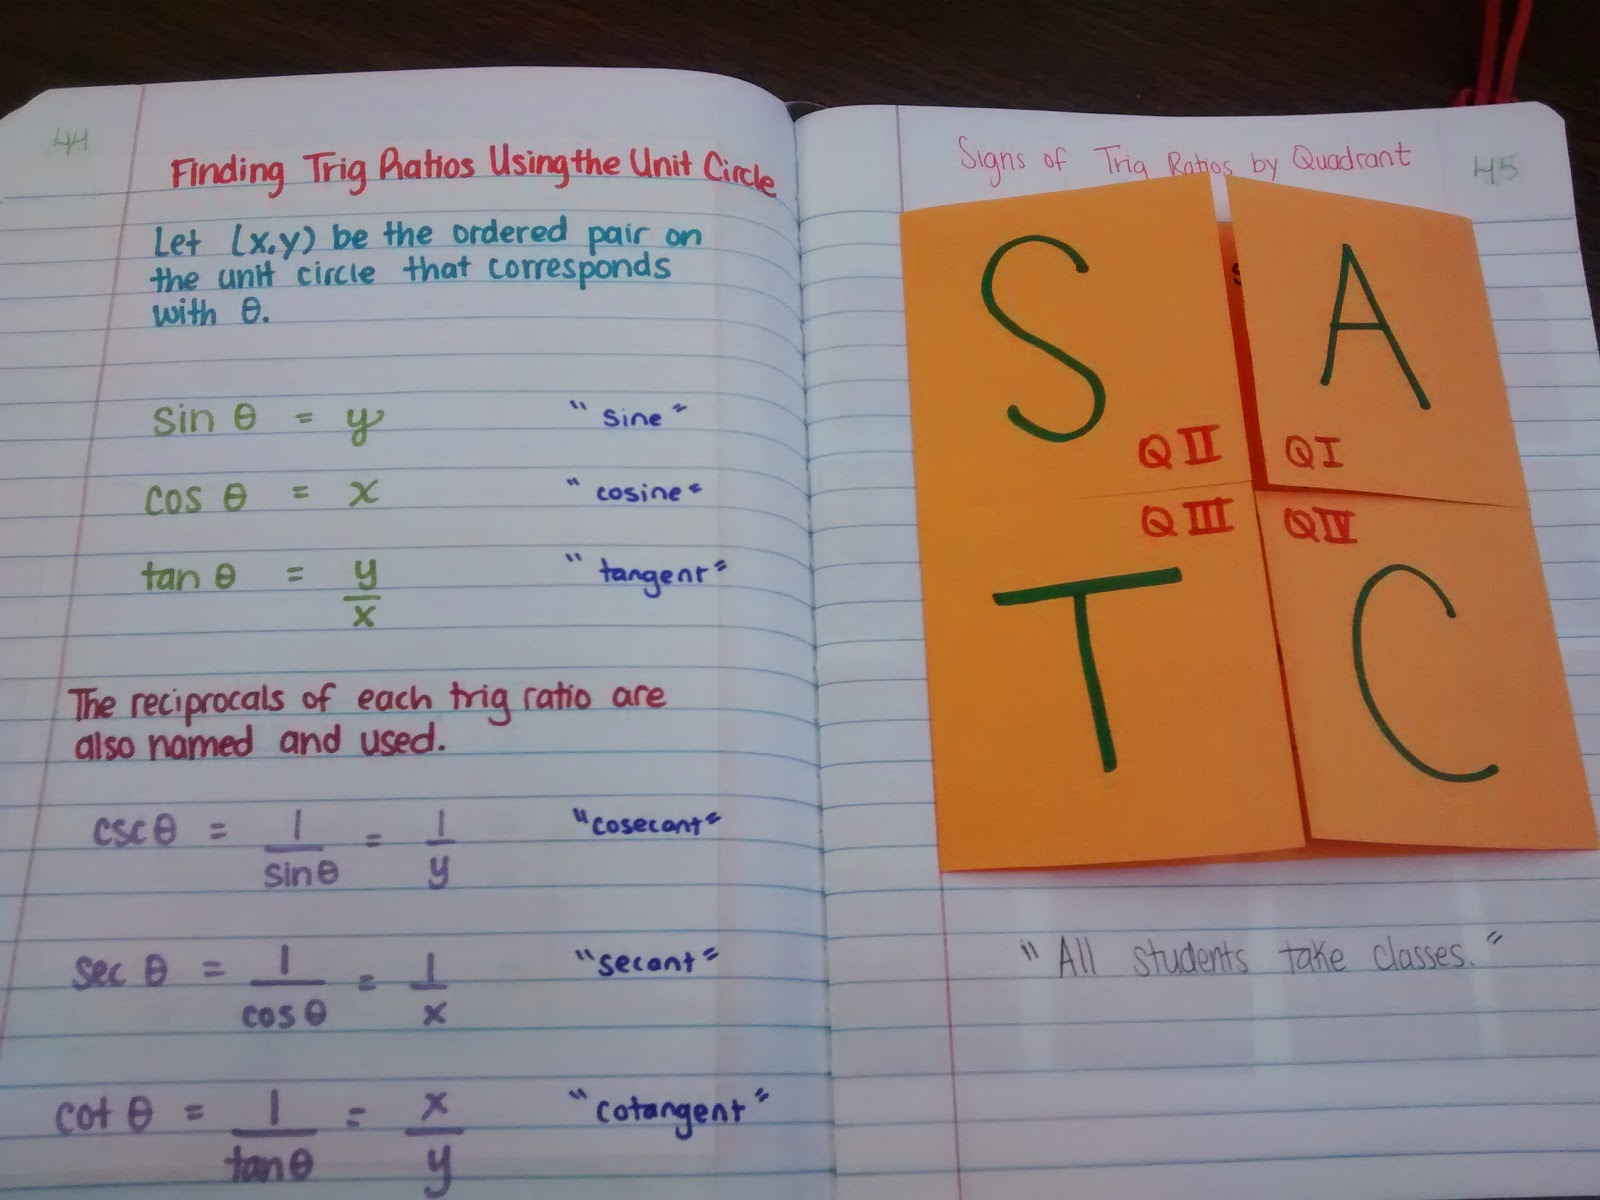 44
Finding Trig Ratios Using the Unit Circle
Let (x,y) be the ordered pair on
the unit circle that corresponds
with θ.
sin θ = y "sine"
cos θ = x "cosine"
tan θ = y/x "tangent"
The reciprocals of each trig ratio are
also named and used.
csc θ = 1/sin θ = 1/y "cosecant"
sec θ = 1/cos θ = 1/x "secant"
cot θ = 1/tan θ = x/y "cotangent"
Signs of Trig Ratios by Quadrant 45
S A
QII QI
QIII QIV
T C
"All students take classes."